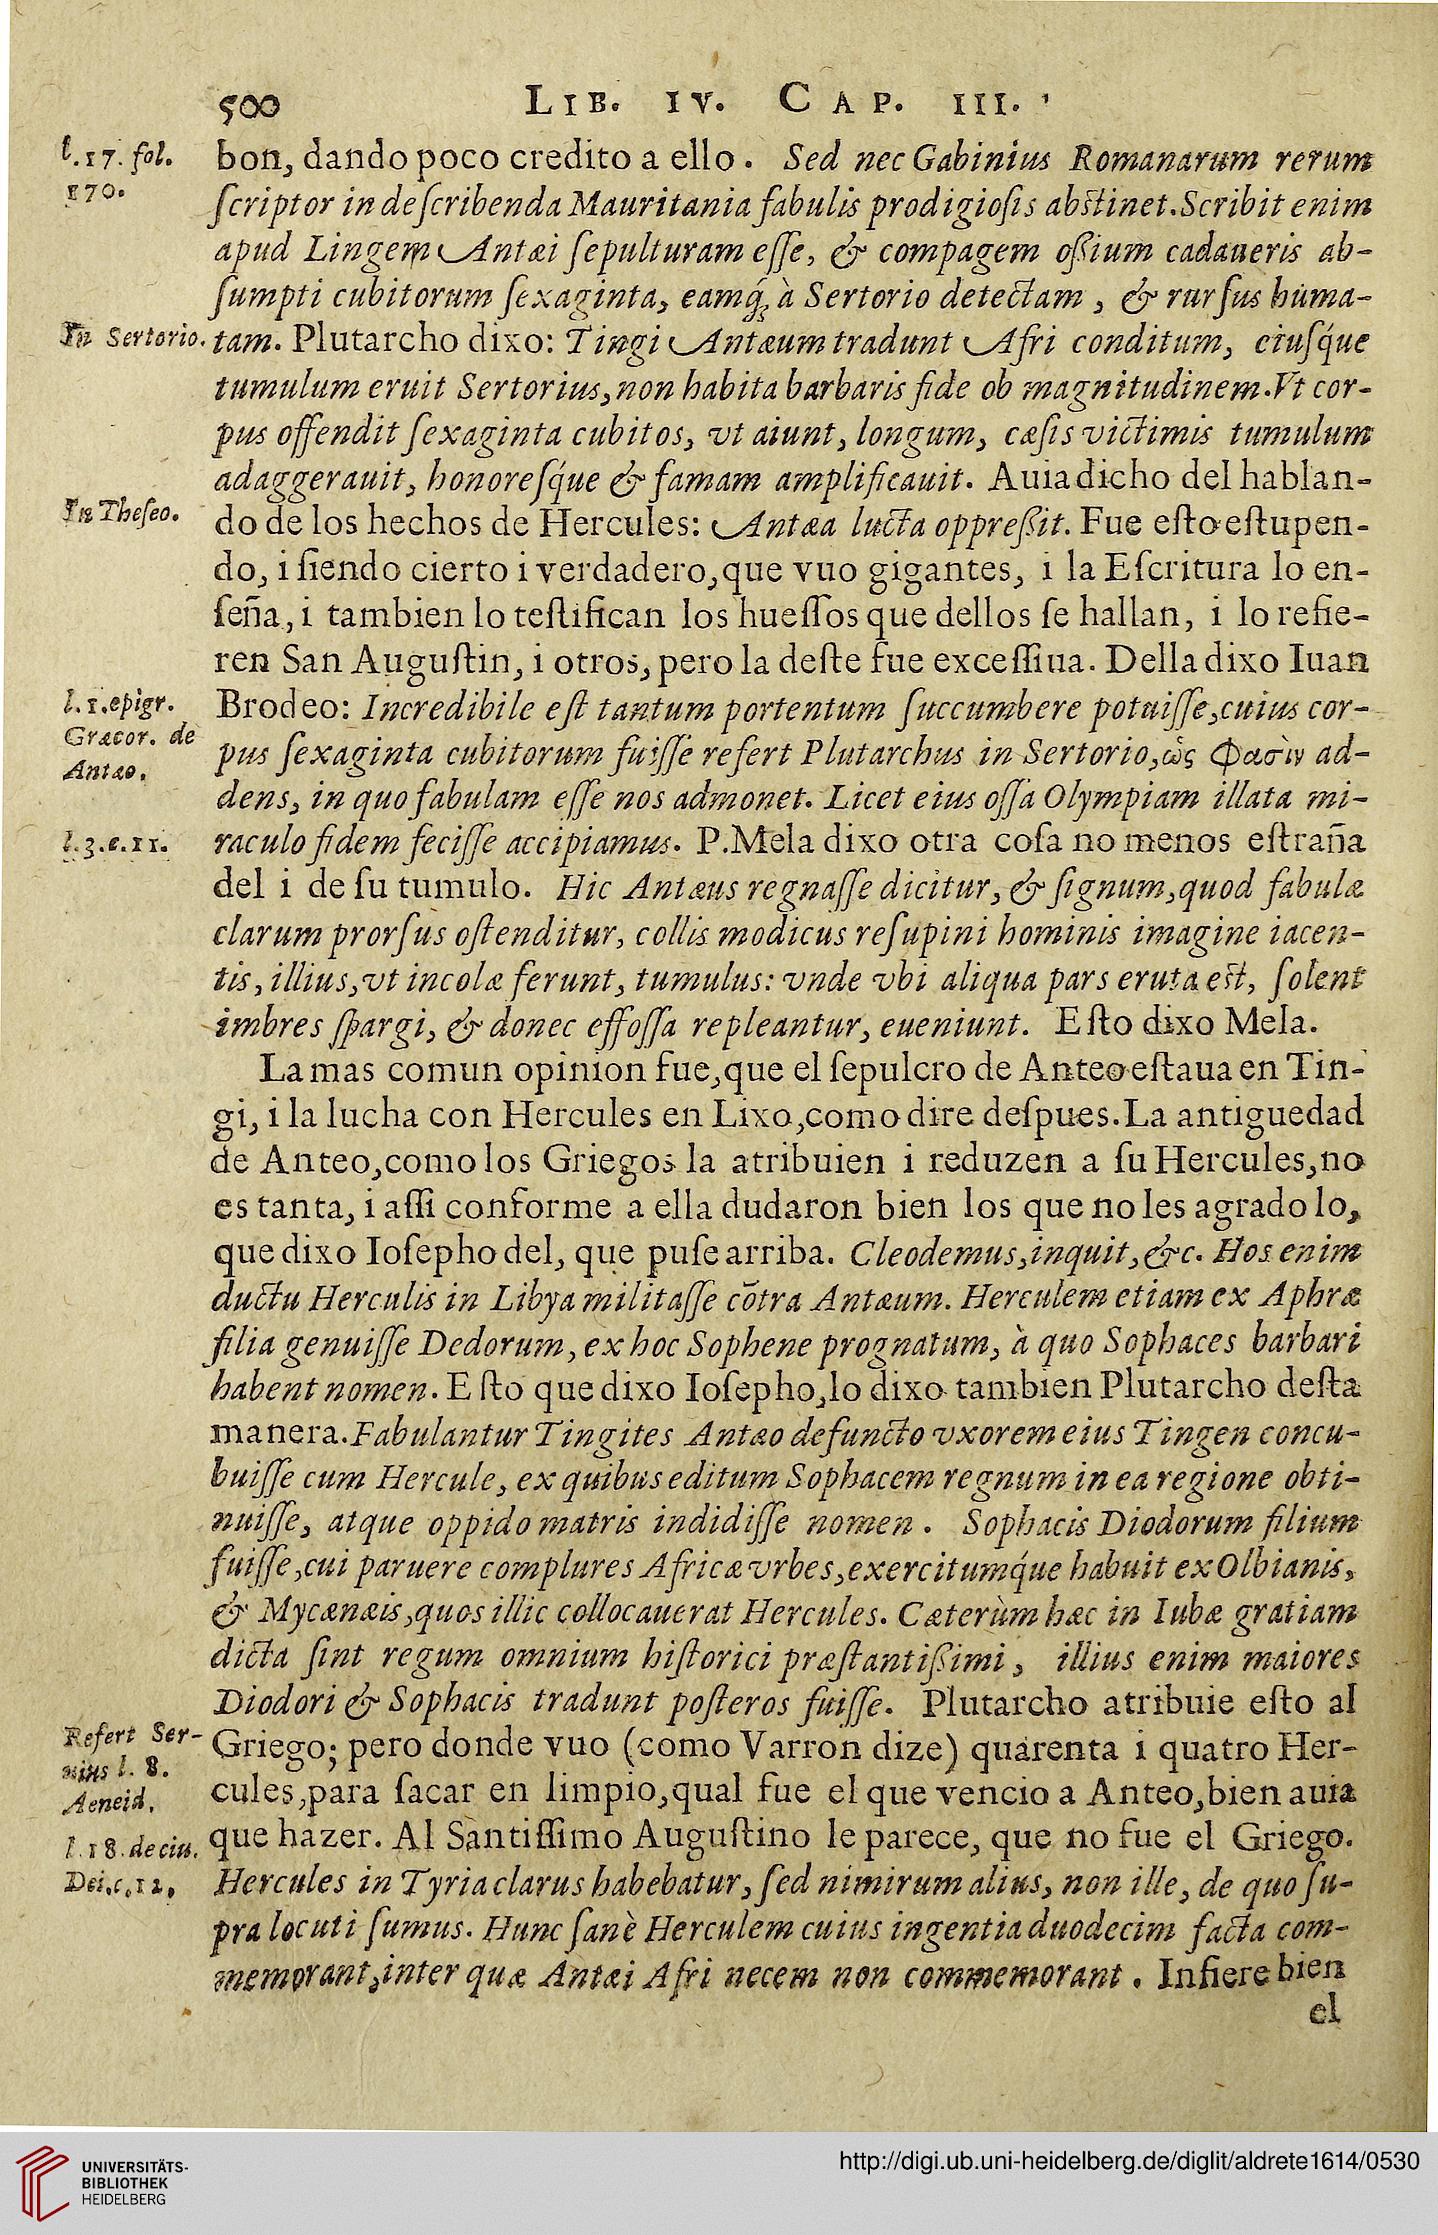 500 LIB. IV. CAP. III.
l.17. fol.
170.
bon, dando poco credito a ello. Sed nec Gabinius Romanarum rerum
ſcriptor in deſcribenda Mauritania fabulis prodigioſis abstinet. Scribit enim
apud Lingem Antæi ſepulturam eſſe, & compagem oſſium cadaueris ab-
ſumpti cubitorum ſexaginta, eamq́; à Sertorio detectam, & rurſus huma-
In Sertorio.
tam. Plutarcho dixo: Tingi Antæum tradunt Afri conditum, eiuſq́ue
tumulum eruit Sertorius, non habita barbaris fide ob magnitudinem. Vt cor-
pus offendit ſexaginta cubitos, vt aiunt, longum, cæſis victimis tumulum
adaggerauit, honoreſq́ue & famam amplificauit. Auia dicho del hablan-
In Theſeo.
do de los hechos de Hercules: Antæa lucta oppreſſit. Fue eſto eſtupen-
do, i ſiendo cierto i verdadero, que vuo gigantes, i la Eſcritura lo en-
ſeña, i tambien lo teſtifican los hueſſos que dellos ſe hallan, i lo refie-
ren San Auguſtin, i otros, pero la deſte fue exceſſiua. Della dixo Iuan
l.1.epigr.
Græcor. de
Antæo.
Brodeo: Incredibile eſt tantum portentum ſuccumbere potuiſſe, cuius cor-
pus ſexaginta cubitorum fuiſſe refert Plutarchus in Sertorio, ὡς Φασὶν ad-
dens, in quo fabulam eſſe nos admonet. Licet eius oſſa Olympiam illata mi-
l.3.c.11.
raculo fidem feciſſe accipiamus. P. Mela dixo otra coſa no menos eſtraña
del i de ſu tumulo. Hic Antæus regnaſſe dicitur, & ſignum, quod fabulæ
clarum prorſus oſtenditur, collis modicus reſupini hominis imagine iacen-
tis, illius, vt incolæ ferunt, tumulus: vnde vbi aliqua pars eruta est, ſolent
imbres ſpargi, & donec effoſſa repleantur, eueniunt. Eſto dixo Mela.
La mas comun opinion fue, que el ſepulcro de Anteo eſtaua en Tin-
gi, i la lucha con Hercules en Lixo, como dire deſpues. La antiguedad
de Anteo, como los Griegos la atribuien i reduzen a ſu Hercules, no
es tanta, i aſſi conforme a ella dudaron bien los que no les agrado lo,
que dixo Ioſepho del, que puſe arriba. Cleodemus, inquit, &c. Hos enim
ductu Herculis in Libya militaſſe cōtra Antæum. Herculem etiam ex Aphræ
filia genuiſſe Dedorum, ex hoc Sophene prognatum, à quo Sophaces barbari
habent nomen. Eſto que dixo Ioſepho, lo dixo tambien Plutarcho deſta
manera. Fabulantur Tingites Antæo defuncto vxorem eius Tingen concu-
buiſſe cum Hercule, ex quibus editum Sophacem regnum in ea regione obti-
nuiſſe, atque oppido matris indidiſſe nomen. Sophacis Diodorum filium
fuiſſe, cui paruere complures Africæ vrbes, exercitumq́ue habuit ex Olbianis,
& Mycænæis, quos illic collocauerat Hercules. Cæterùm hæc in Iubæ gratiam
dicta ſint regum omnium hiſtorici præſtantiſſimi, illius enim maiores
Diodori & Sophacis tradunt poſteros fuiſſe. Plutarcho atribuie eſto al
Refert Ser-
uius l. 8.
Aeneid.
Griego; pero donde vuo (como Varron dize) quarenta i quatro Her-
cules, para ſacar en limpio, qual fue el que vencio a Anteo, bien auia
l.18.de ciu.
Dei.c.12.
que hazer. Al Santiſſimo Auguſtino le parece, que no fue el Griego.
Hercules in Tyria clarus habebatur, ſed nimirum alius, non ille, de quo ſu-
pra locuti ſumus. Hunc ſanè Herculem cuius ingentia duodecim facta com-
memorant, inter quæ Antæi Afri necem non commemorant. Infiere bien
el
UNIVERSITÄTS-
BIBLIOTHEK
HEIDELBERG
http://digi.ub.uni-heidelberg.de/diglit/aldrete1614/0530